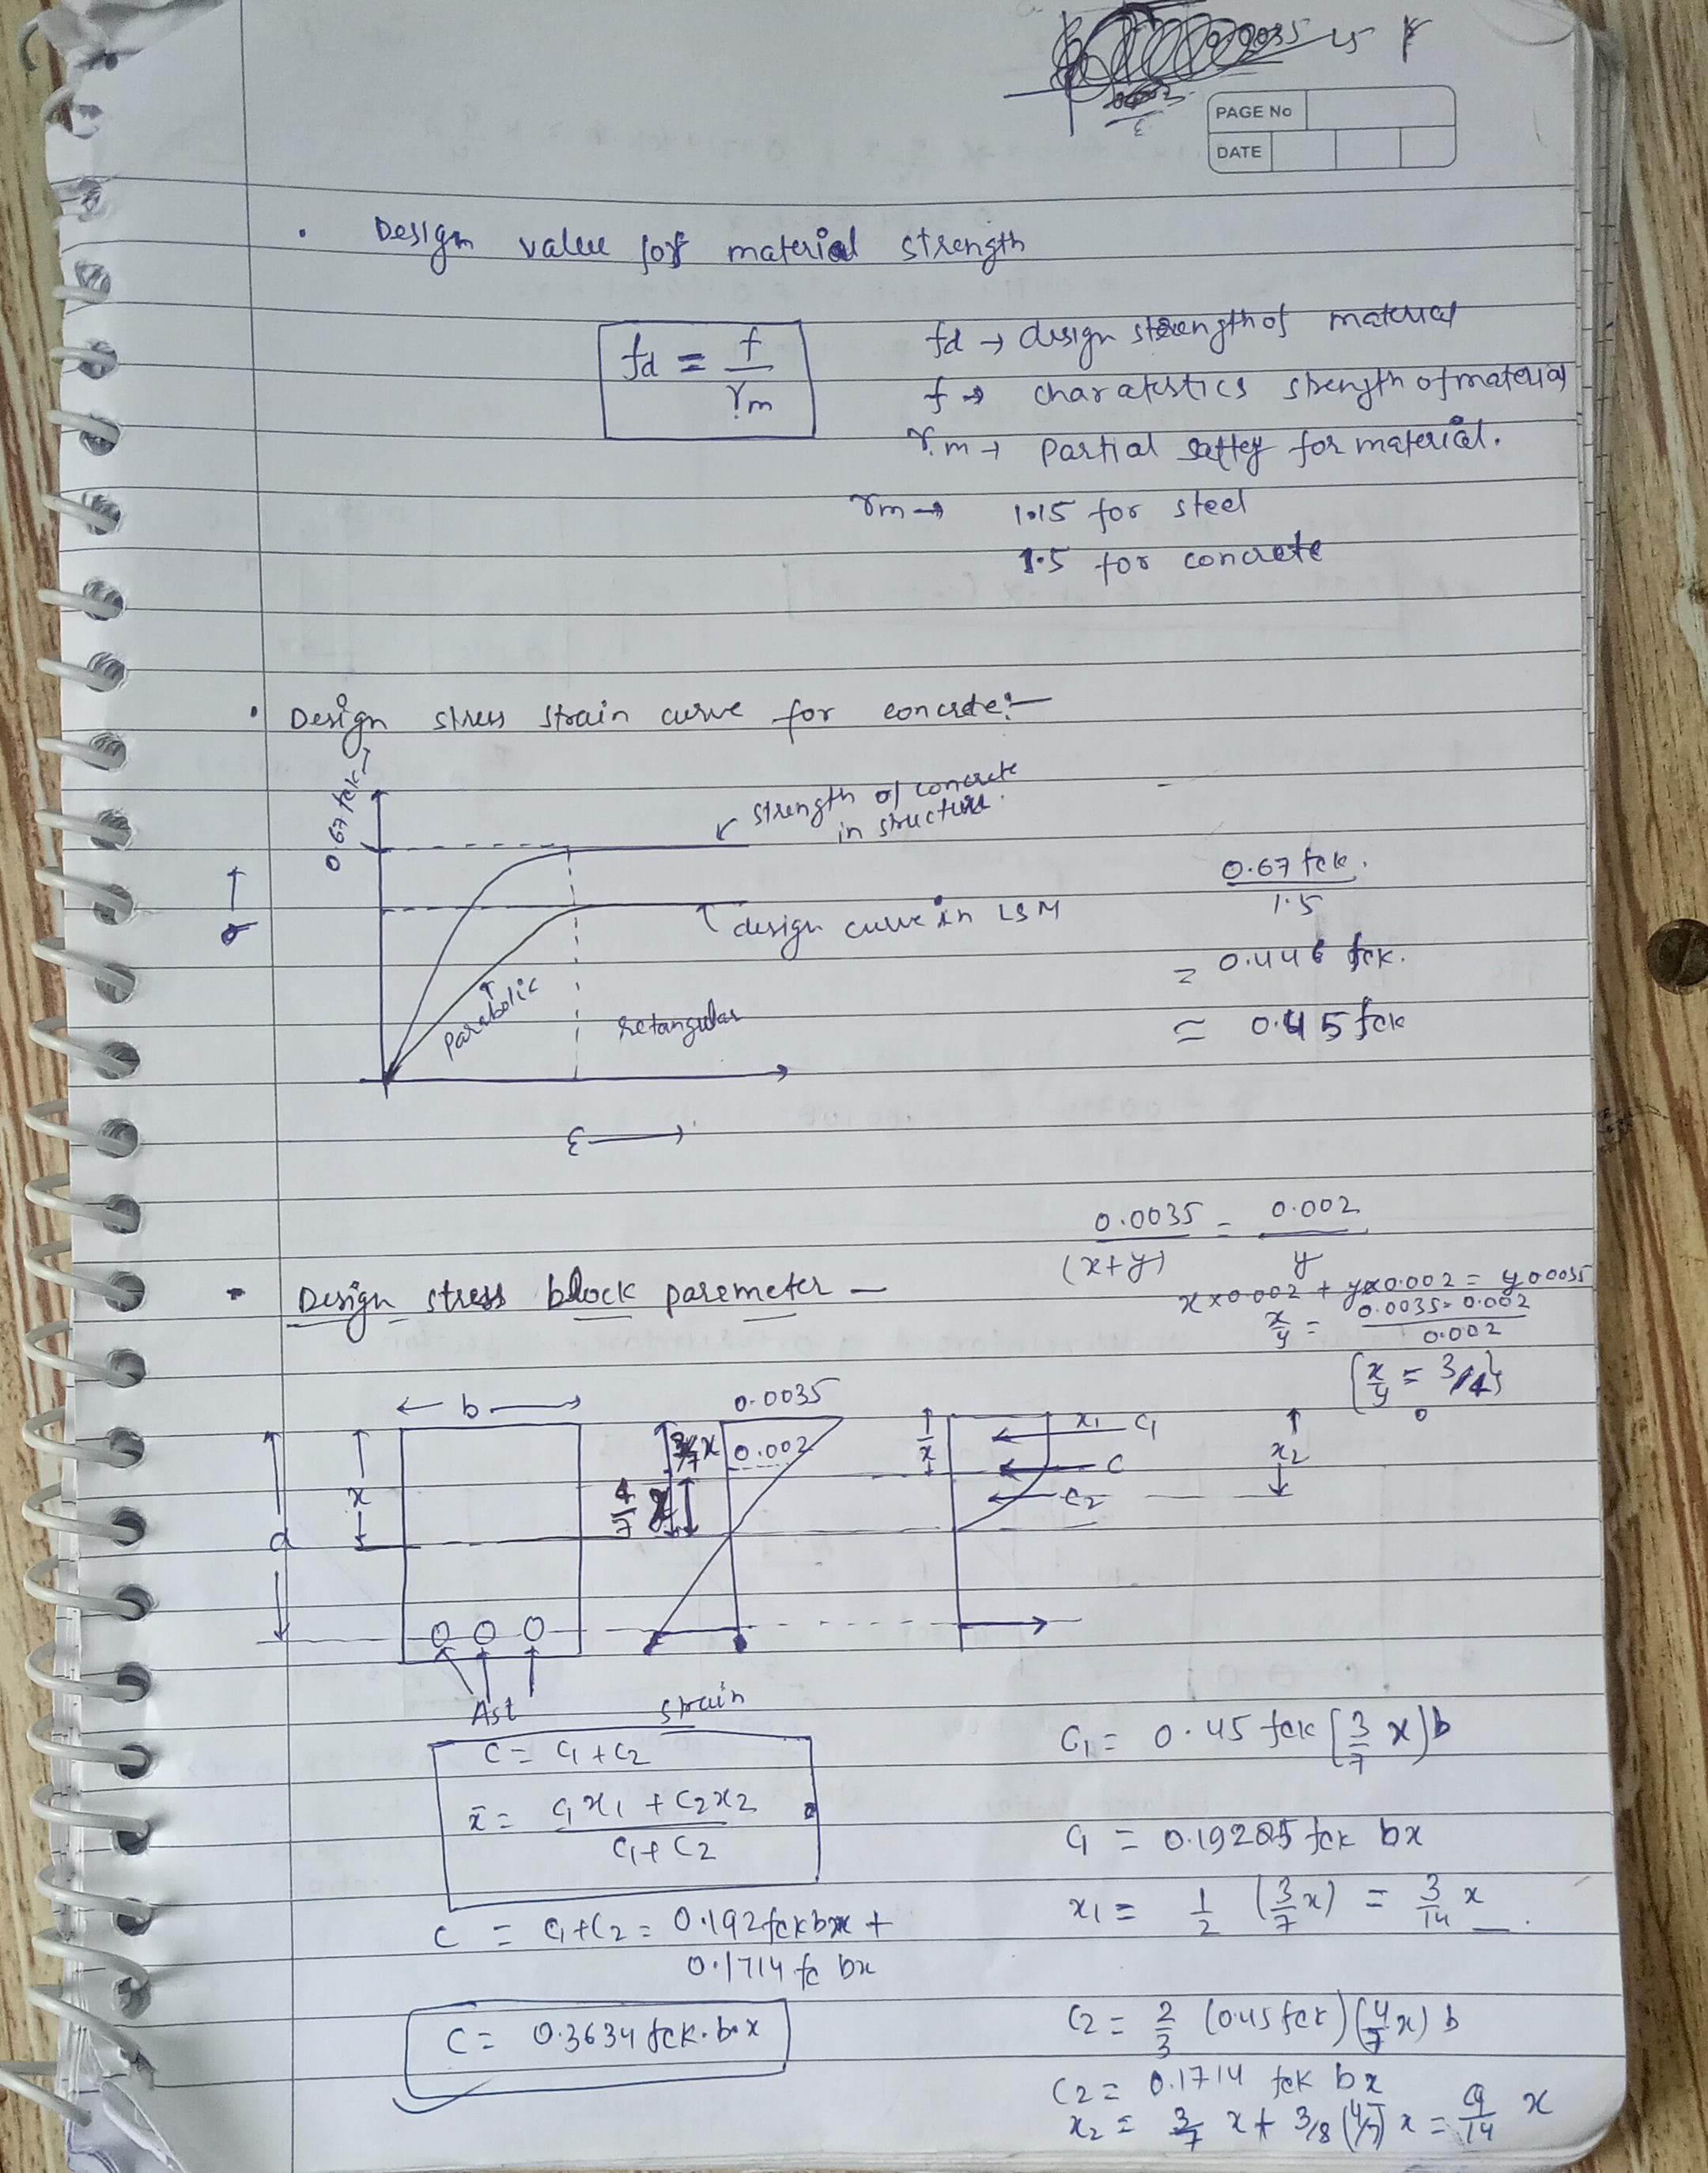 0.0035
PAGE No
DATE
• Design value for material strength
fd = f / γm
fd → design strength of material
f → charatestics strength of material
γm → Partial saftey for material.
γm → 1.15 for steel
1.5 for concrete
• Design stress strain curve for concrete:-
0.67 fck
strength of concrete
in structure.
σ →
design curve in LSM
parabolic
retangular
ε →
0.67 fck / 1.5
= 0.446 fck.
≈ 0.45 fck
0.0035 / (x+y) = 0.002 / y
x×0.002 + y×0.002 = y0.0035
x/y = 0.0035-0.002 / 0.002
x/y = 3/4
• Design stress block paremeter -
← b →
d
x
0.0035
3/7 x
0.002
4/7 x
x̄
x1 C1
C
C2
x2
Ast
strain
C = C1 + C2
x̄ = C1x1 + C2x2 / C1 + C2
C = C1+C2 = 0.192 fck bx +
0.1714 fc bx
C = 0.3634 fck.b.x
C1 = 0.45 fck [3/7 x] b
C1 = 0.19285 fck bx
x1 = 1/2 (3/7 x) = 3/14 x
C2 = 2/3 (0.45 fck) (4/7 x) b
C2 = 0.1714 fck bx
x2 = 3/7 x + 3/8 (4/7) x = 9/14 x